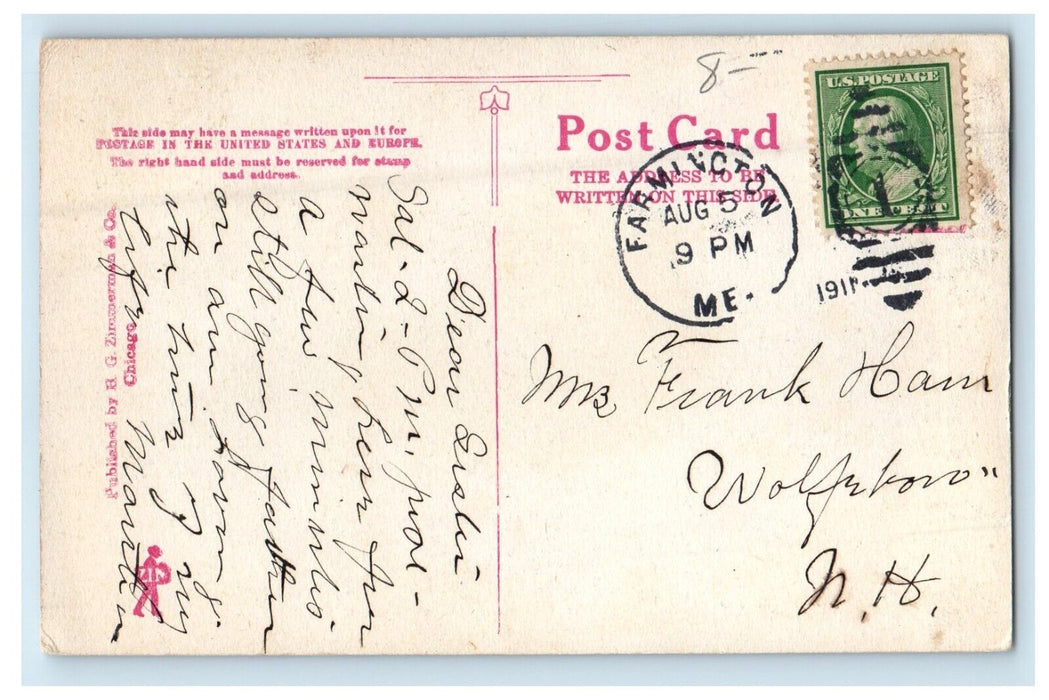 8-
This side may have a message written upon it for
POSTAGE IN THE UNITED STATES AND EUROPE.
The right hand side must be reserved for stamp
and address.
Post Card
THE ADDRESS TO BE
WRITTEN ON THIS SIDE.
U.S. POSTAGE
ONE CENT
FARMINGTON
AUG 5
9 PM
ME.
1911
1
Published by H. G. Zimmerman & Co.
Chicago
ZIM
Dear Sister
Sat. 2 - P m. just
waiting here for
a few minutes.
still going farther
on am having
the time of my
life. Martin
Mrs Frank Ham
Wolfeboro
N. H.